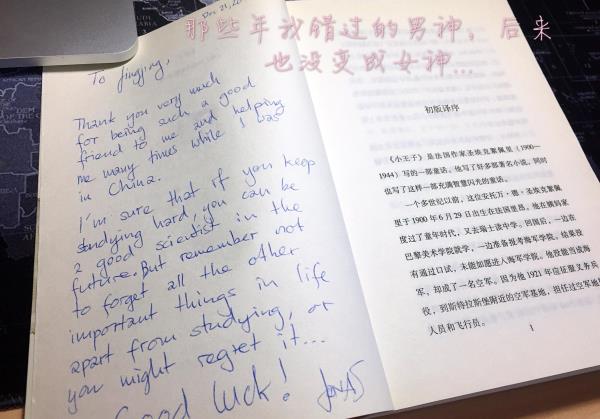 那些年我错过的男神，后来
也没变成女神...
Dec 21, 20
To Jingjing,
Thank you very much
for being such a good
friend to me and helping
me many times while I was
in China.
I'm sure that if you keep
studying hard, you can be
a good scientist in the
future. But remember not
to forget all the other
important things in life
apart from studying, or
you might regret it...
Good luck! JONAS
初版译序
《小王子》是法国作家圣埃克絮佩里（1900—
1944）写的一部童话。他写了好多部著名小说，同时
也写了这样一部充满智慧闪光的童话。
一个多世纪以前，这位安托万·德·圣埃克絮佩
里于1900年6月29日出生在法国里昂。他在姨妈家
度过了童年时代，又去瑞士读中学。回国后，一边在
巴黎美术学院就学，一边准备报考海军学院。结果没
有通过口试，未能如愿进入海军学院。他没能当成海
军，却成了一名空军。因为他1921年应征服义务兵
役，到斯特拉斯堡附近的空军基地，担任过空军地勤
人员和飞行员。
1